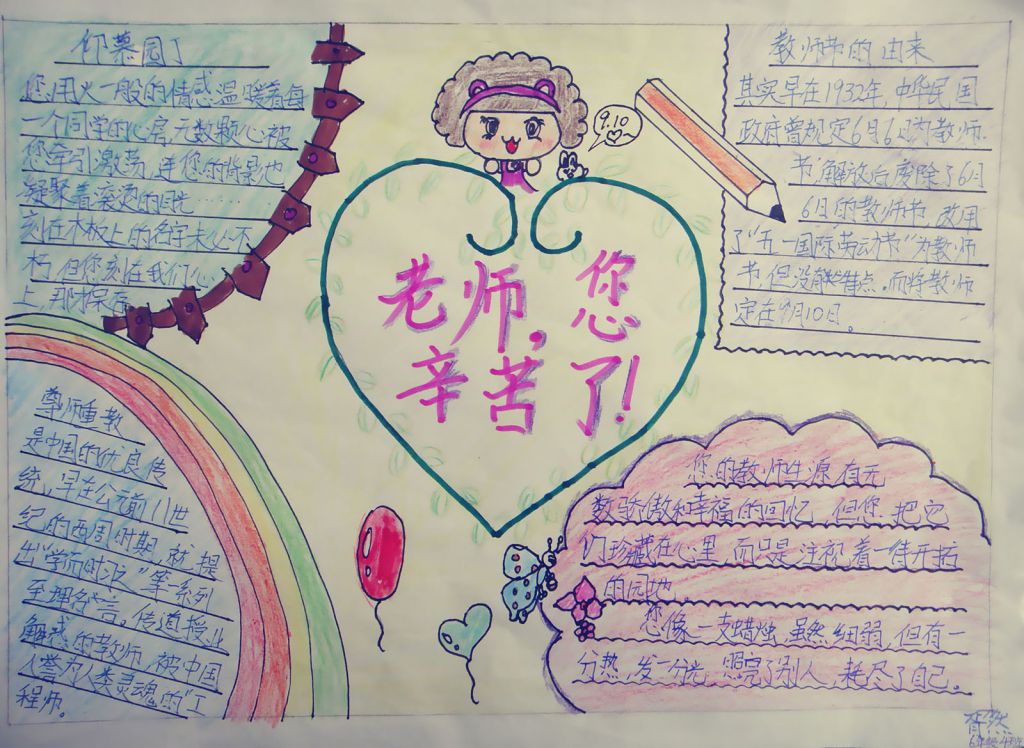 仰慕园丁
您用火一般的情感温暖着每
一个同学的心房,无数颗心被
您牵引激荡,连您的背影也
凝聚着滚烫的目光……
刻在木板上的名字未必不
朽,但您刻在我们心
上,那才保存
9.10
老师,您
辛苦了!
教师节的由来
其实早在1932年,中华民国
政府曾规定6月6日为教师
节,解放后废除了6月
6日的教师节,改用
了“五一国际劳动节”为教师
节,但没有特点,而将教师
定在9月10日。
尊师重教
是中国的优良传
统,早在公元前11世
纪的西周时期,就提
出“学而时习”等一系列
至理名言。传道授业
解惑的教师,被中国
人誉为人类灵魂的“工
程师。
您的教师生源有无
数骄傲和幸福的回忆,但您把它
们珍藏在心里,而只是注视着一件开拓
的园地。
您像一支蜡烛,虽然细弱,但有一
分热,发一分光,照亮了别人,耗尽了自己。